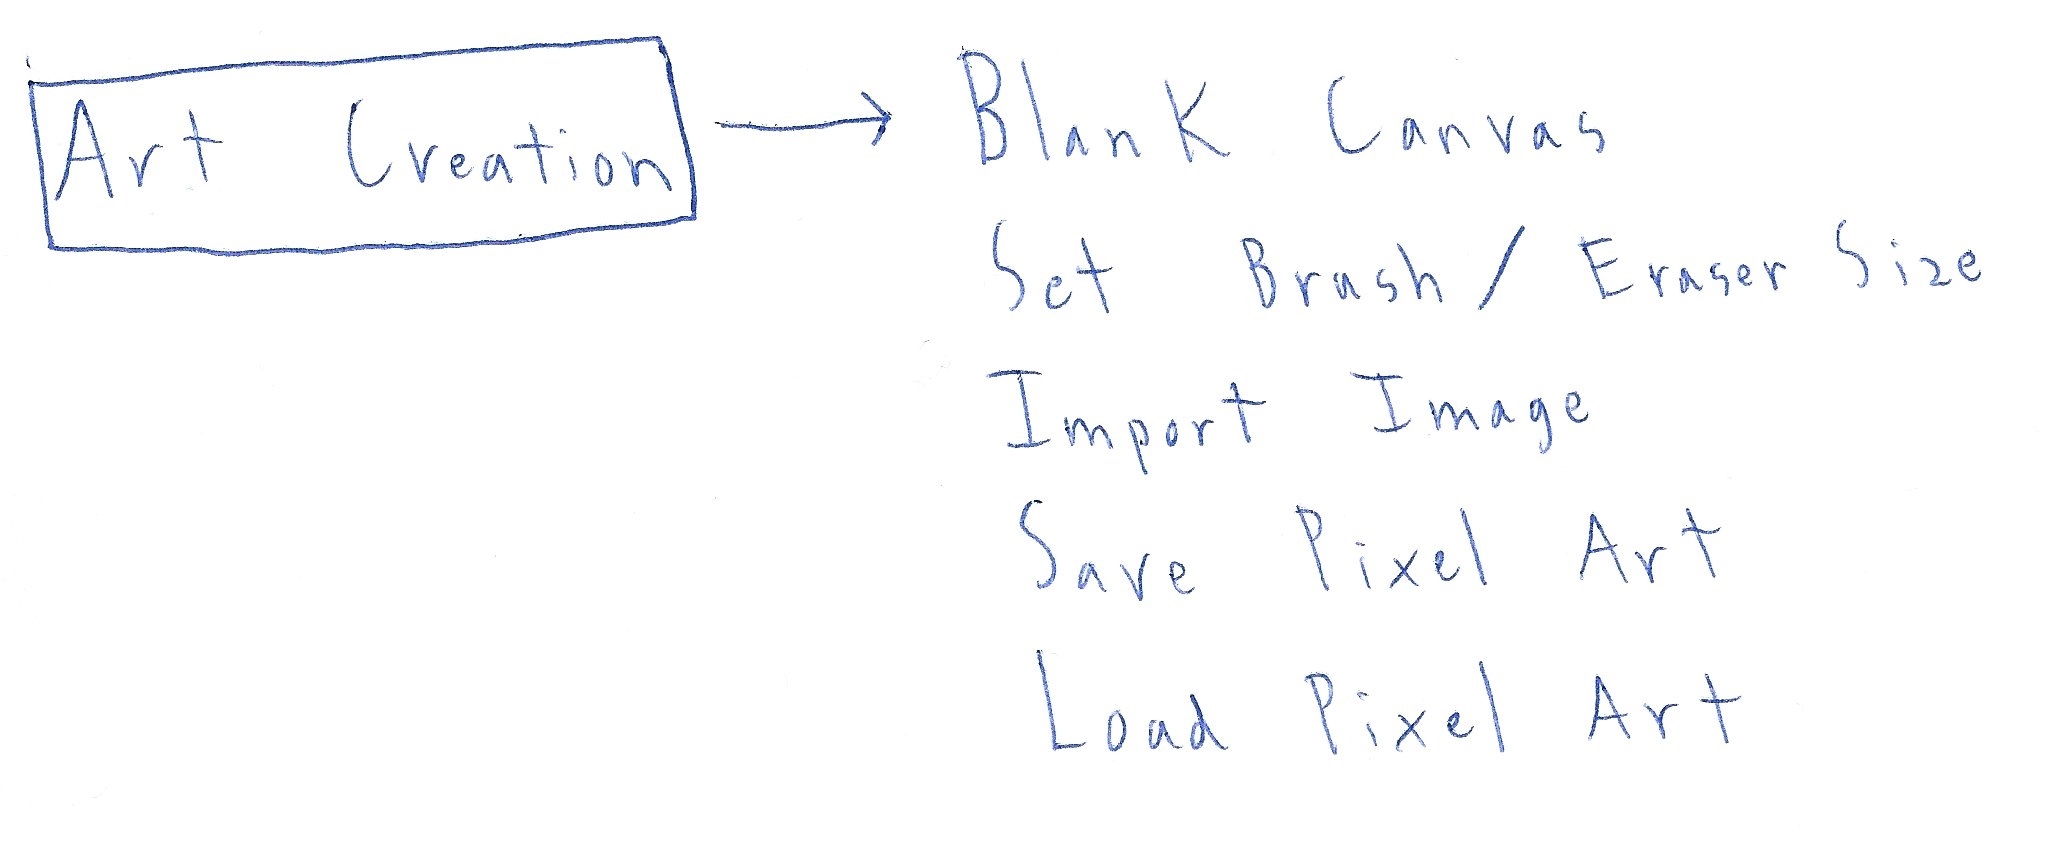 Art Creation
Blank Canvas
Set Brush / Eraser Size
Import Image
Save Pixel Art
Load Pixel Art